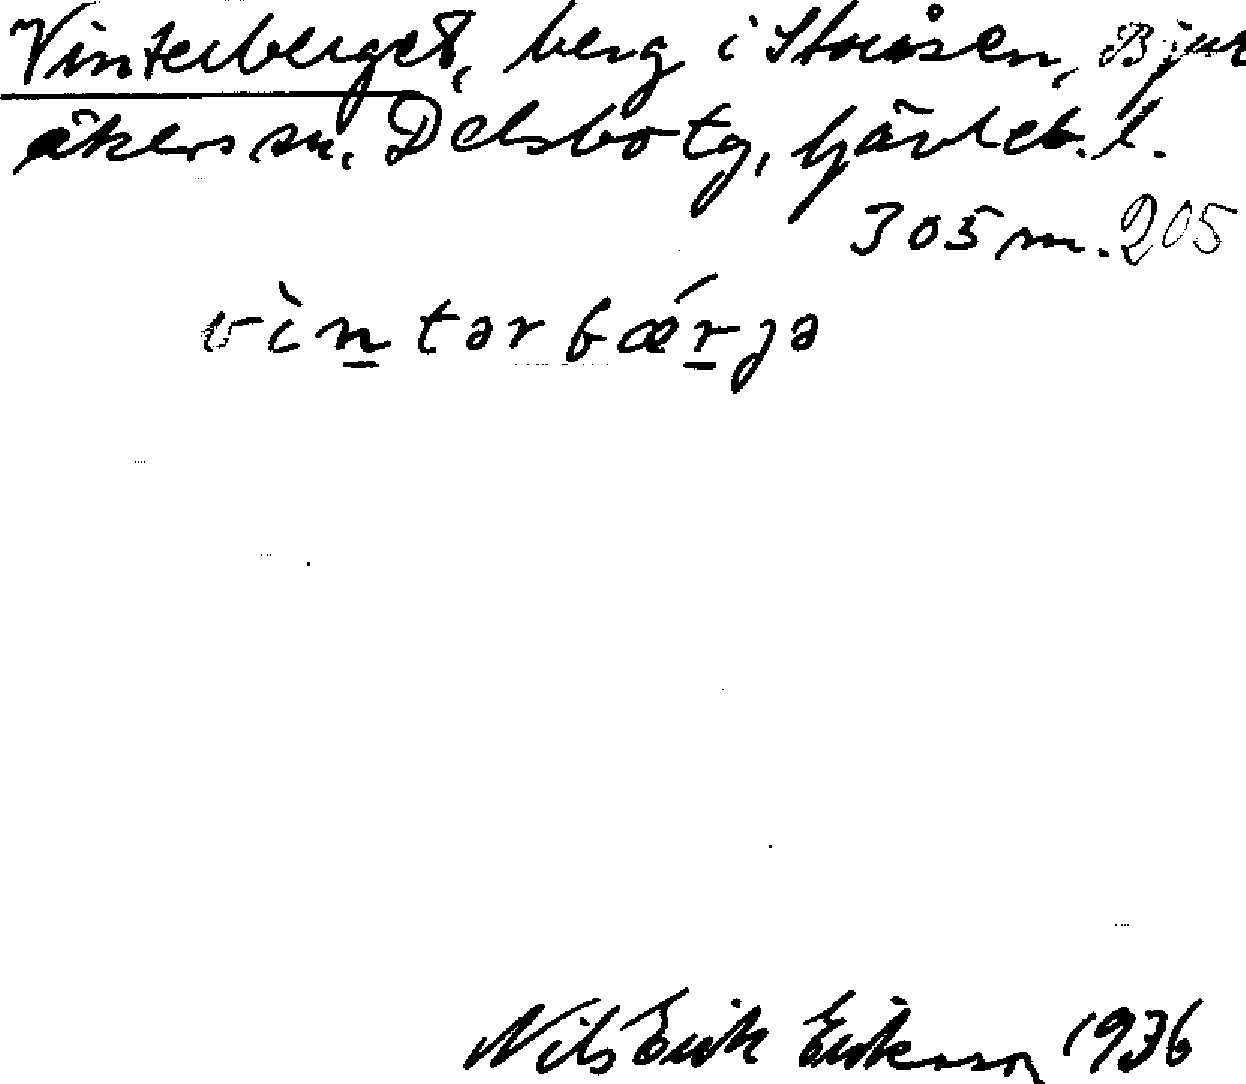 Vinterberget, berg i Storåsen, Bjur
åkers sn. Delsbo tg, Gävleb. l.
305 m. 205
vìntərbǽrjə
Nils Erik Eriksson 1936